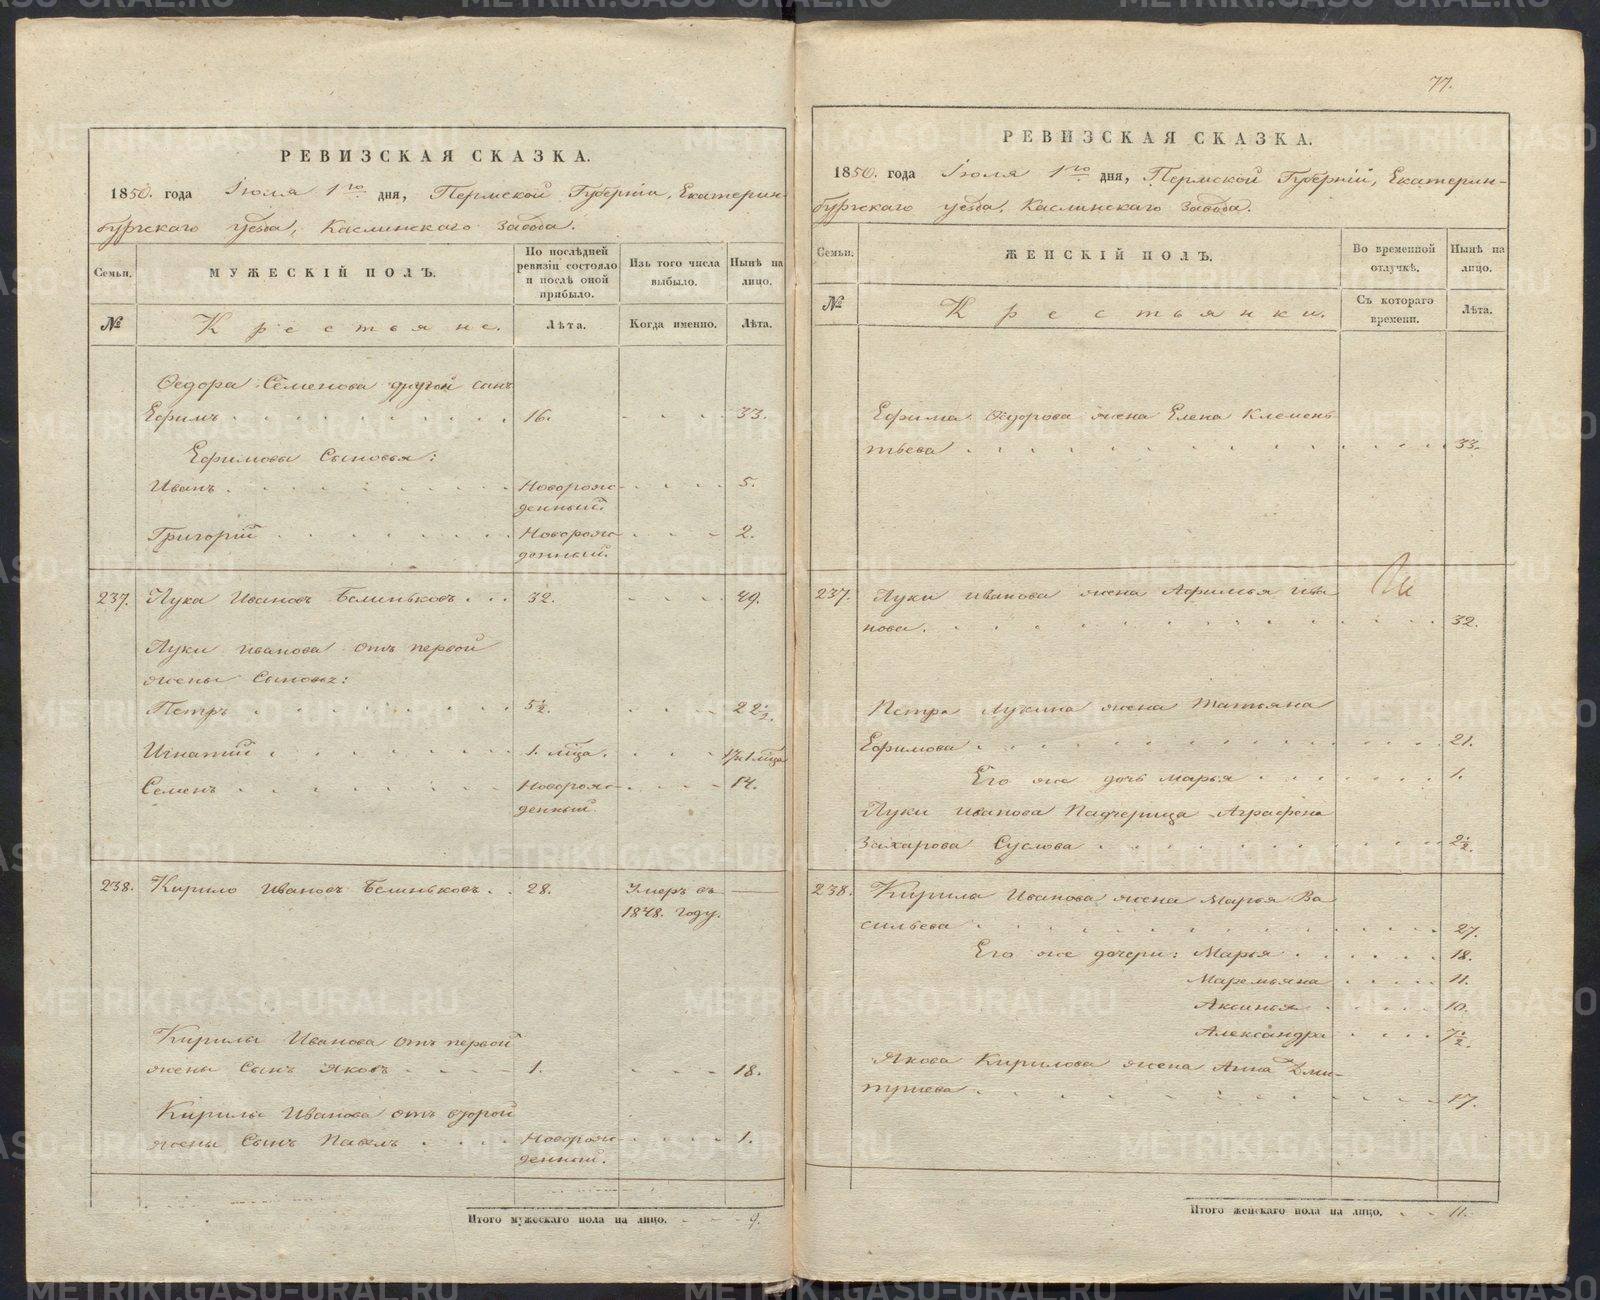 РЕВИЗСКАЯ СКАЗКА.
1850. года Іюля 1го дня, Пермской Губерніи, Екатерин-
бургскаго уѣзда, Каслинскаго завода.
Семьи.
МУЖЕСКІЙ ПОЛЪ.
По послѣдней ревизіи состояло и послѣ оной прибыло.
Изъ того числа выбыло.
Нынѣ на лицо.
№
Крестьяне.
Лѣта.
Когда именно.
Лѣта.
Федора Семенова другой сынъ
Ефимъ 16. 33.
Ефимовы Сыновья:
Иванъ Новорож- 5.
денный.
Григорій Новорож- 2.
денный.
237. Лука Ивановъ Белиньковъ 32. 49.
Луки Иванова отъ первой
жены Сыновья:
Петръ 5½. 22½.
Игнатій 1. мѣсца. 17 и 1 мѣсца
Семенъ Новорож- 14.
денный
238. Кирило Ивановъ Белиньковъ 28. Умеръ въ —
1848. году.
Кирилы Иванова отъ первой
жены Сынъ Яковъ 1. 18.
Кирилы Иванова отъ второй
жены Сынъ Павелъ Новорож- 1.
денный.
Итого мужескаго пола на лицо. 9.
77.
РЕВИЗСКАЯ СКАЗКА.
1850. года Іюля 1го дня, Пермской Губерніи, Екатерин-
бургскаго уѣзда, Каслинскаго завода.
Семьи.
ЖЕНСКІЙ ПОЛЪ.
Во временной отлучкѣ.
Нынѣ на лицо.
№
Крестьянки.
Съ котораго времени.
Лѣта.
Ефима Федорова жена Елена Клемен
тьева 33.
237. Луки Иванова жена Афимья Ива
нова. 32.
Петра Лукина жена Татьяна
Ефимова 21.
Его же дочь Марья 1.
Луки Иванова Падчерица Аграфена
Захарова Суслова 2½.
238. Кирилы Иванова жена Марья Ва
сильева 27.
Его же дочери: Марья 18.
Маремьяна 11.
Аксинья 10.
Александра 7½.
Якова Кирилова жена Анна Дми-
тріева 17.
Итого женскаго пола на лицо. 11.
METRIKI.GASO-URAL.RU